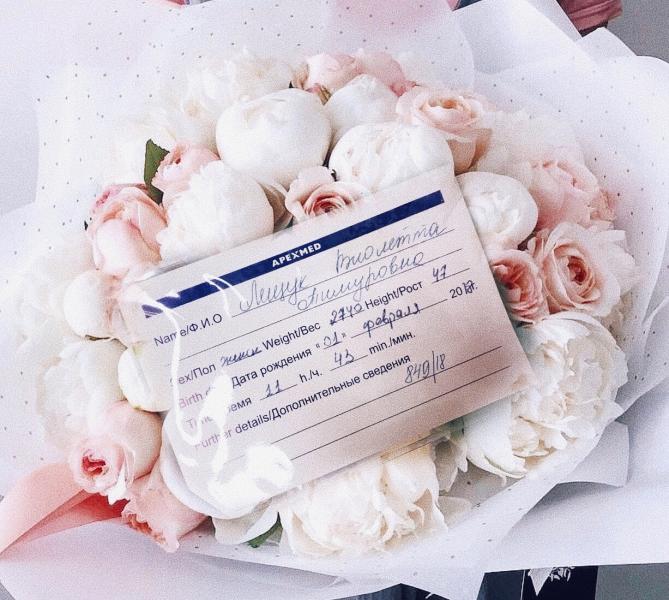 APEXMED
Name/Ф.И.О Лещук Виолетта
Тимуровна
Sex/Пол женск Weight/Вес 2770 Height/Рост 47
Birth Дата рождения "01" февраля 2018г.
Time Время 11 h./ч. 43 min./мин.
Further details/Дополнительные сведения
849/18